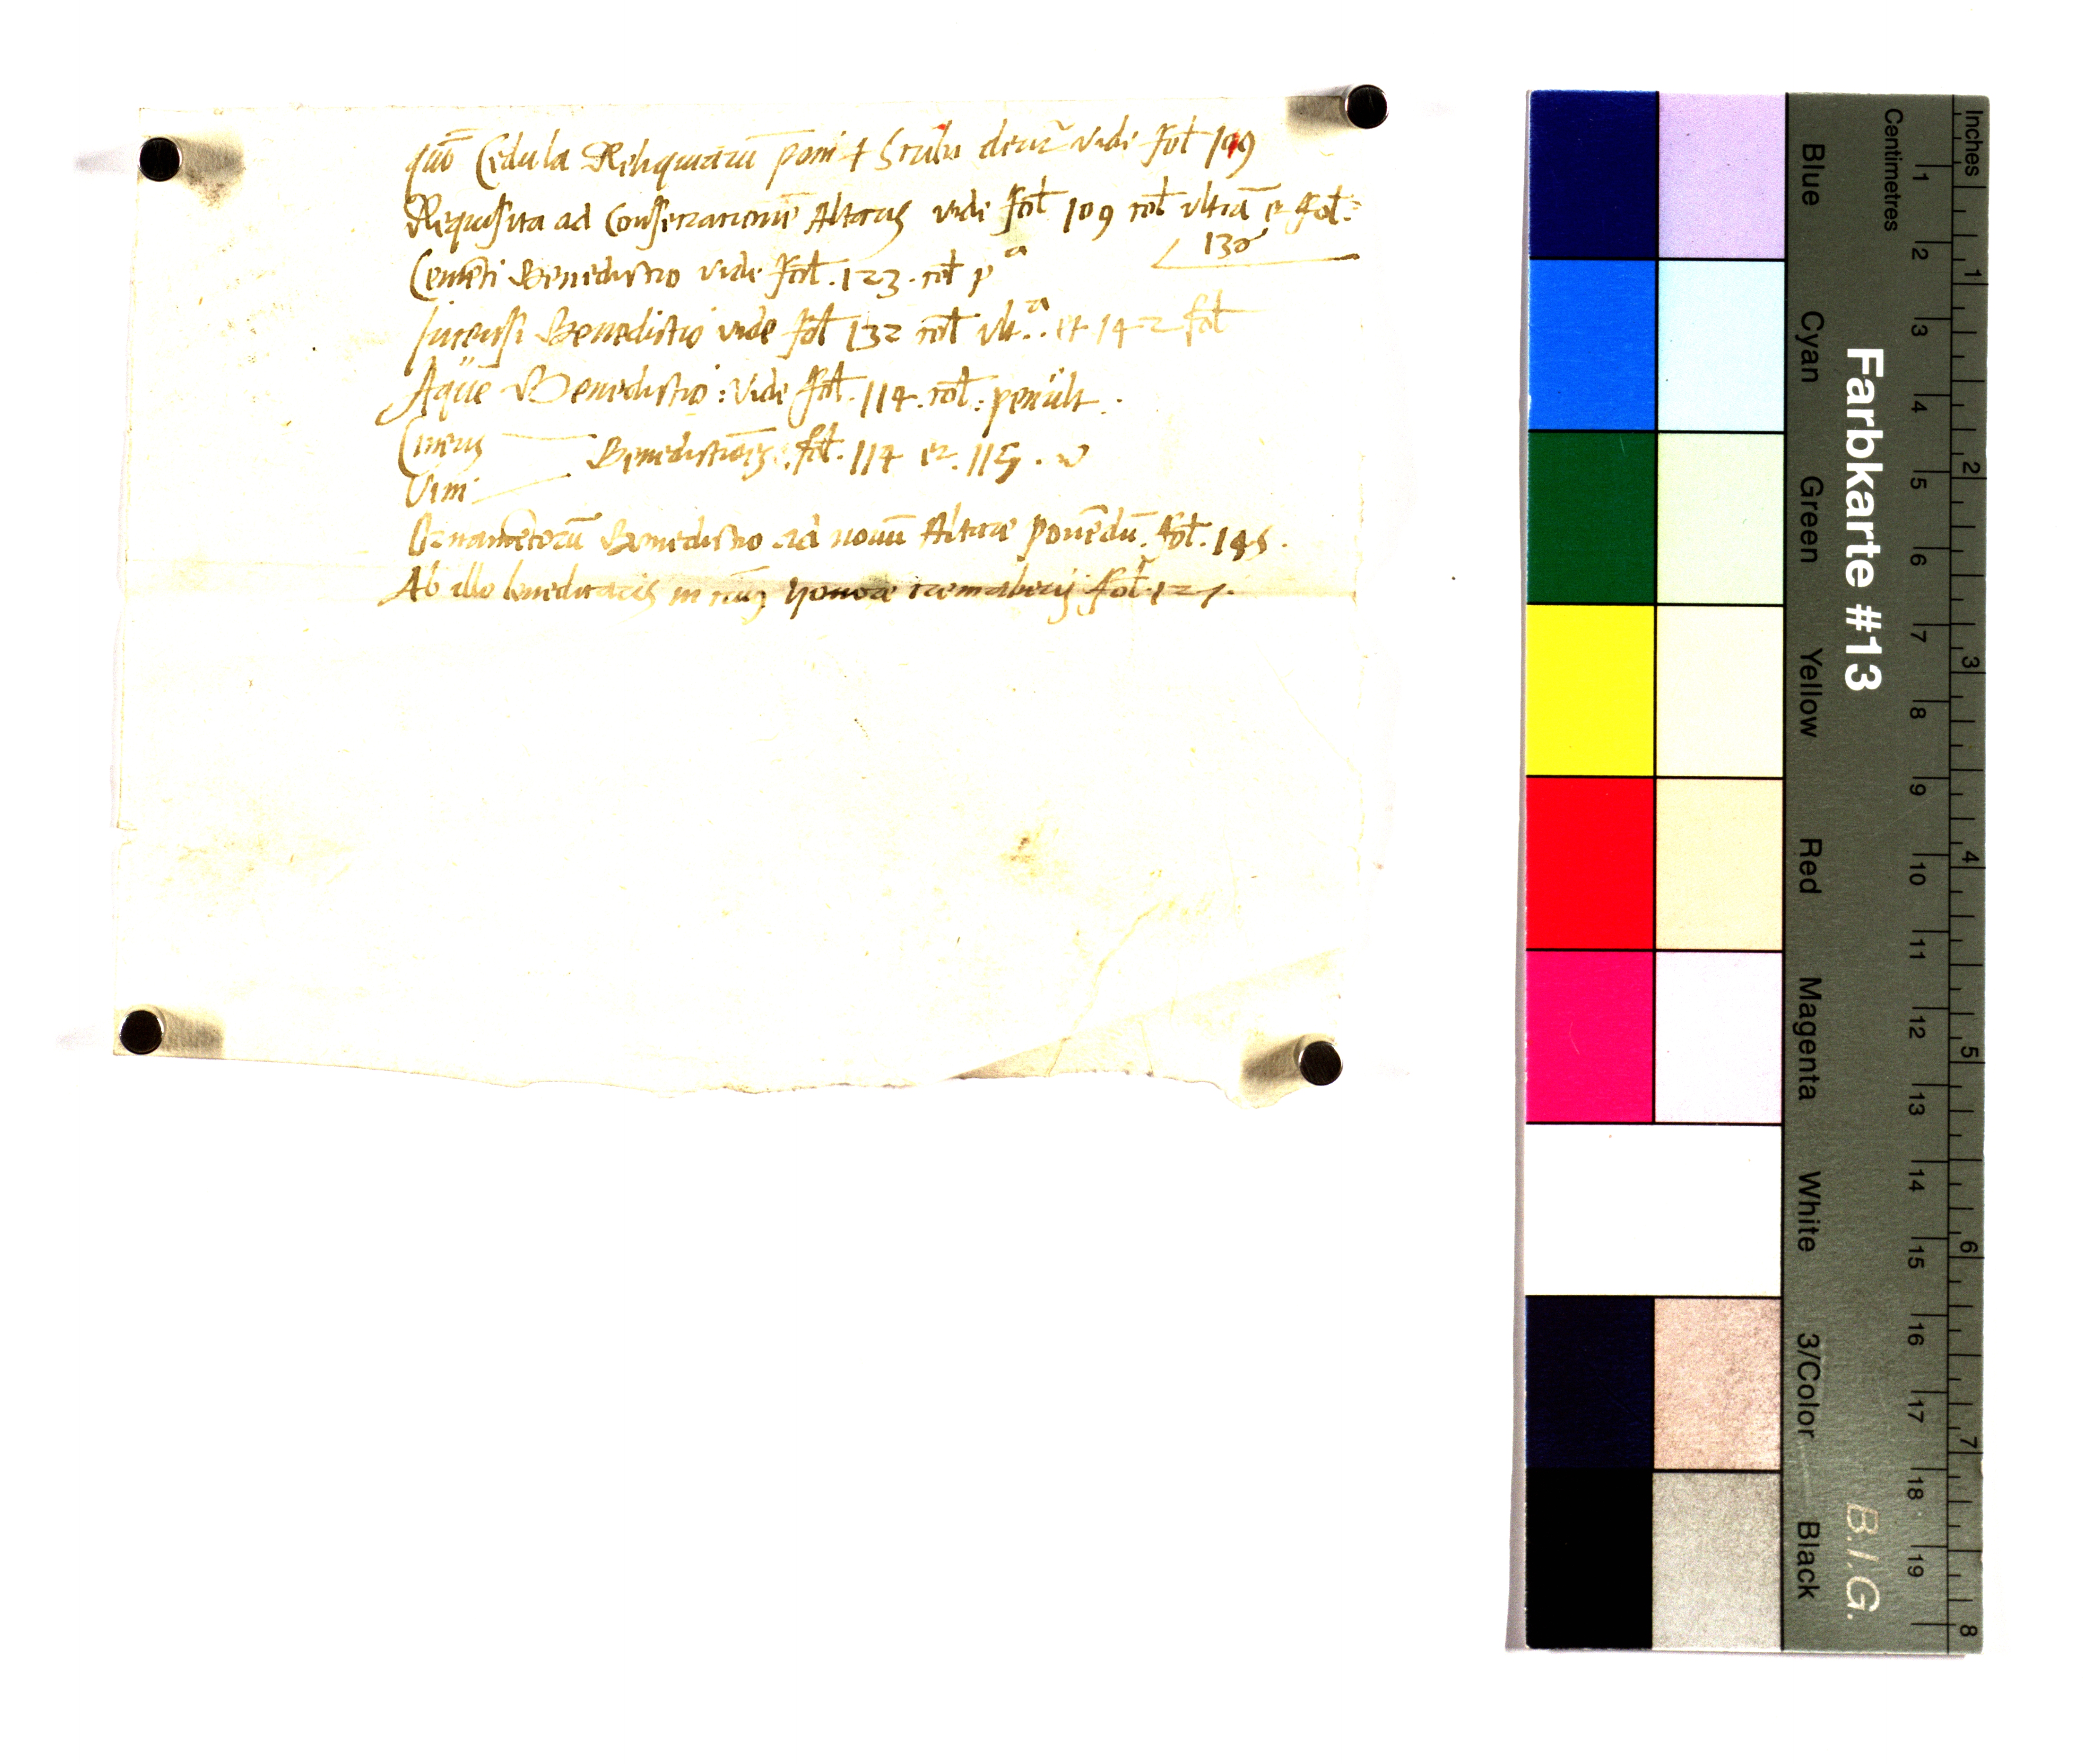 quō Cedula Reliquiarū poni i Scrulu detur vidi fol 109
Requisita ad Consecrationē Altaris vide fol 109 col ultīa et fol.
130
Cemēti Benedictio vide fol. 123. col pa
Incensi Benedictio vide fol 132 col ult.a. et 142 fol
Aque Benedictio: vide fol. 114. col: penult.
Cineris
Benedictiōes. fol. 114 et. 115.
Vini
Ornamētorū Benedictio ad nouū Altare ponēdū. fol. 145.
Ab illo benedicaris in cuius honore cremaberis fol. 127.
Farbkarte #13
B.I.G.
Blue Cyan Green Yellow Red Magenta White 3/Color Black
Centimetres 1 2 3 4 5 6 7 8 9 10 11 12 13 14 15 16 17 18 19
Inches 1 2 3 4 5 6 7 8